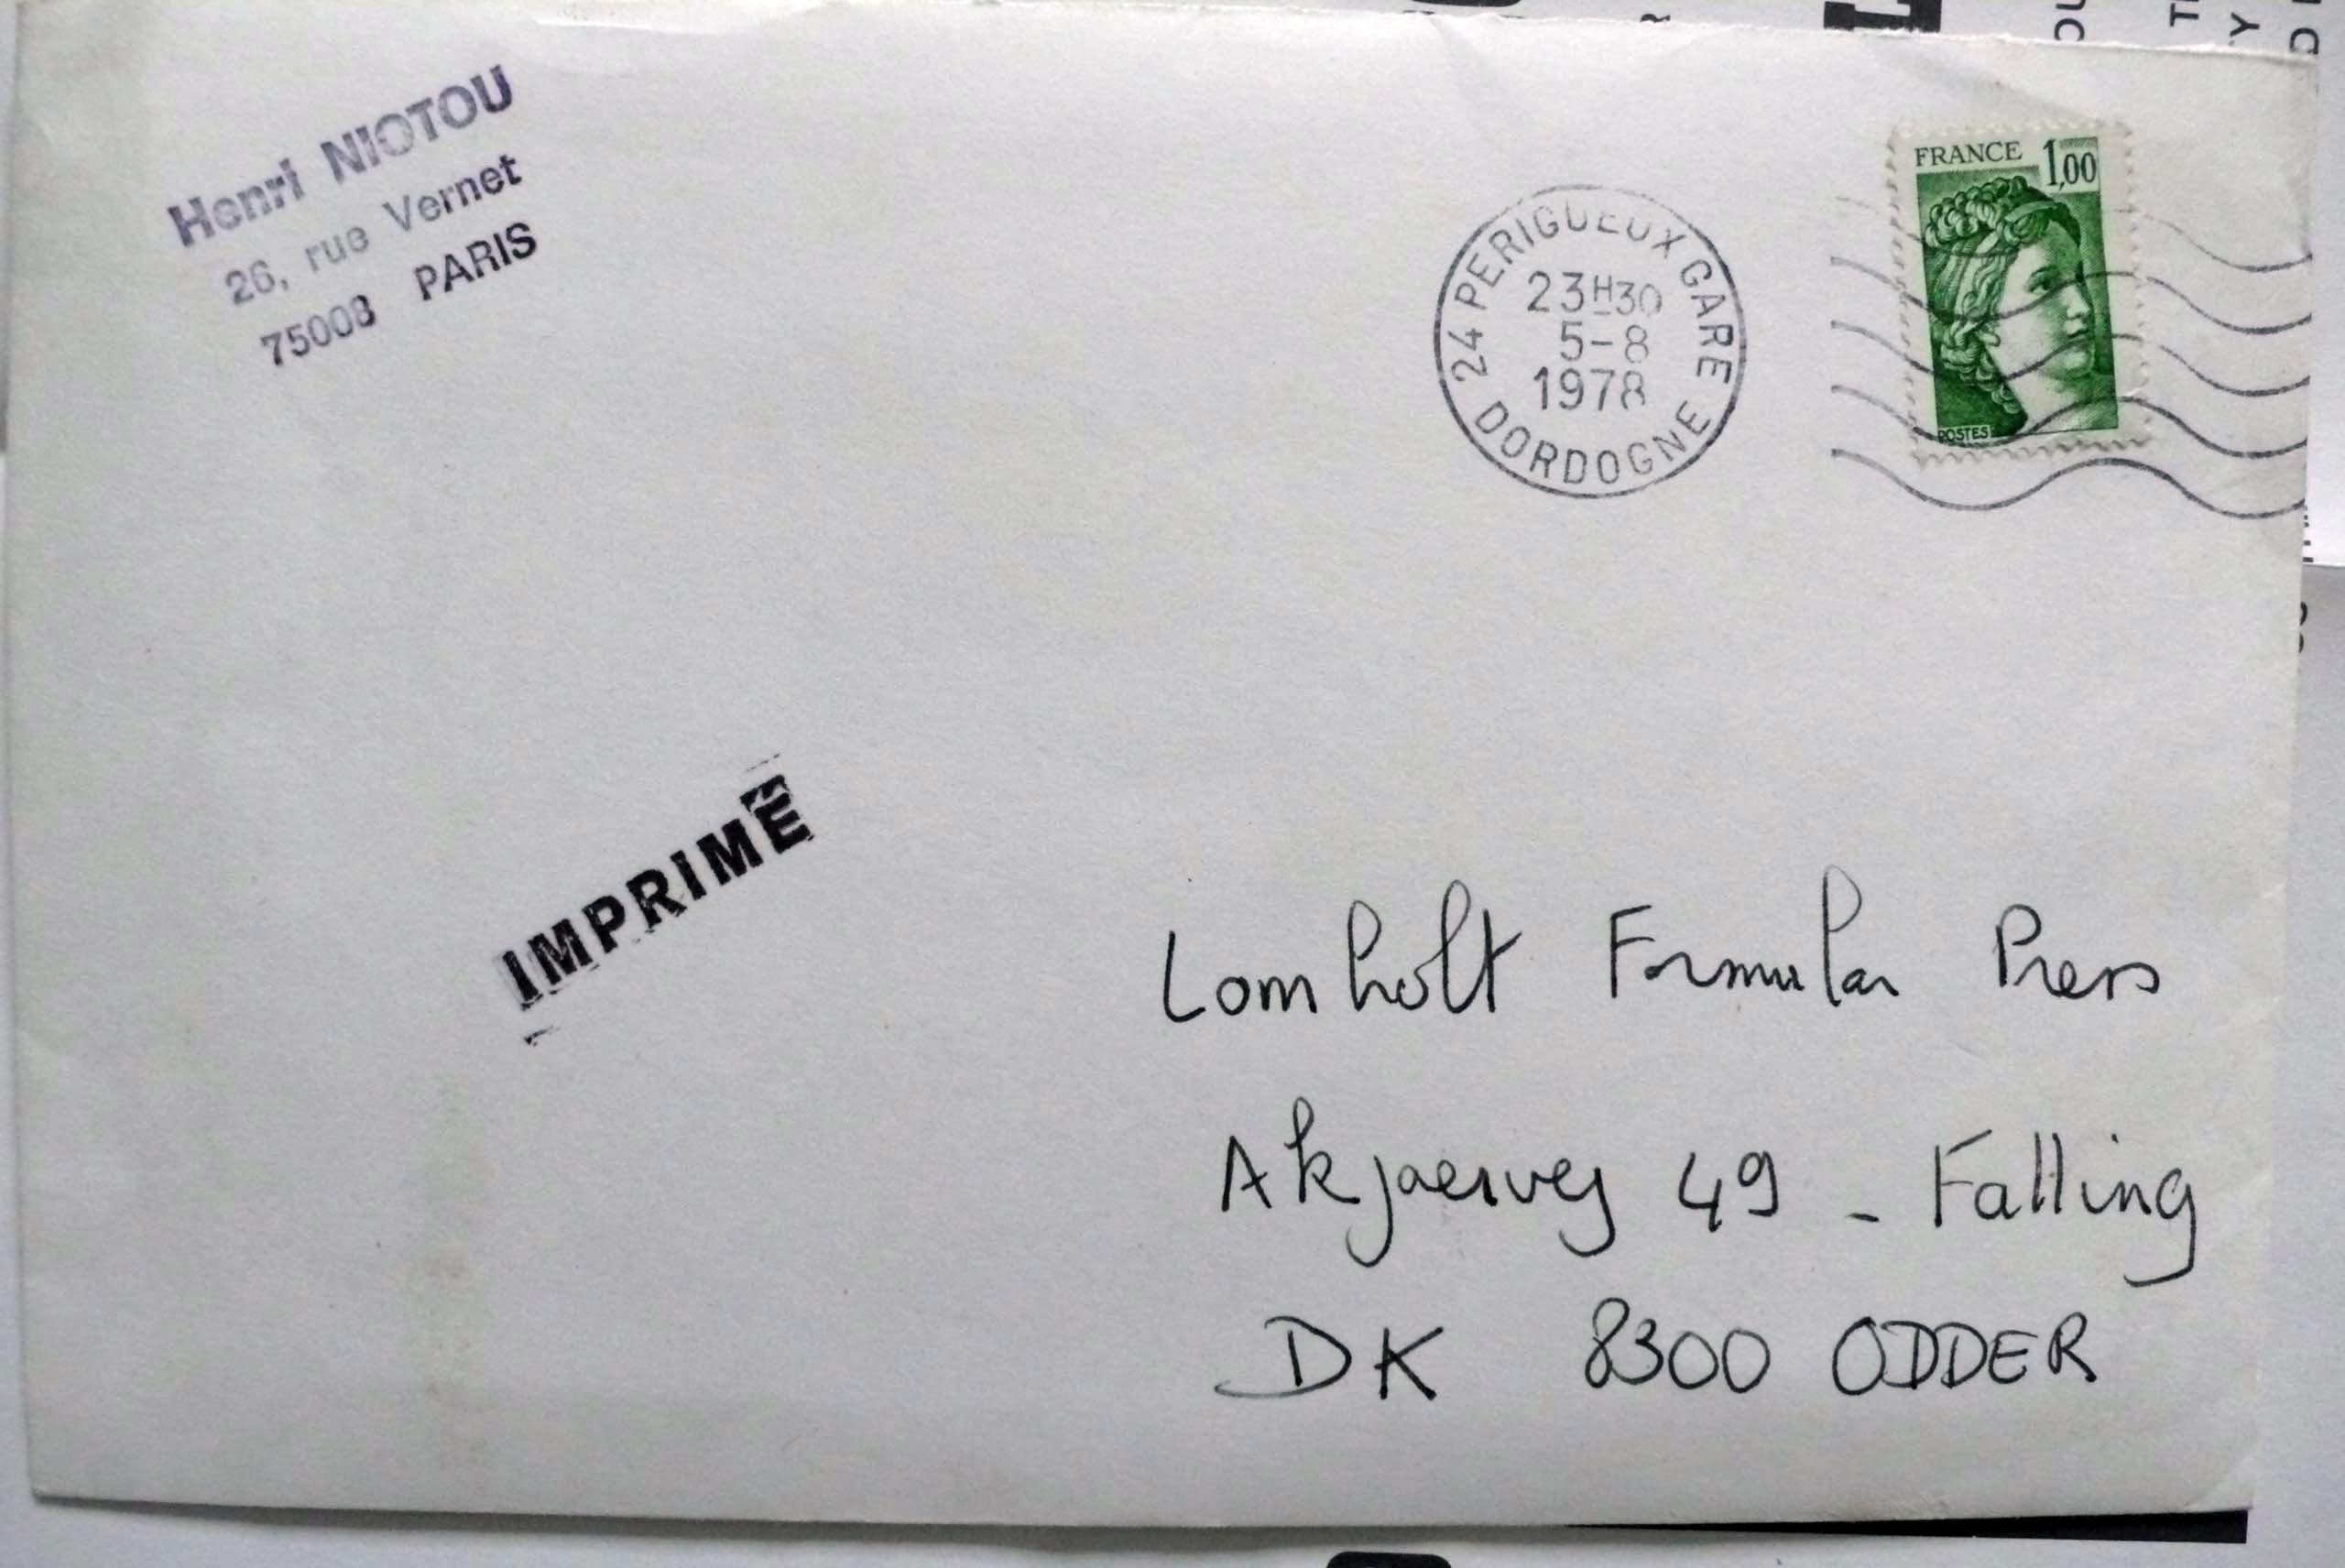 Henri NIOTOU
26, rue Vernet
75008 PARIS
24 PERIGUEUX GARE
23H30
5-8
1978
DORDOGNE
FRANCE 1,00
POSTES
IMPRIMÉ
Lomholt Formular Press
Akjaervej 49 - Falling
DK 8300 ODDER